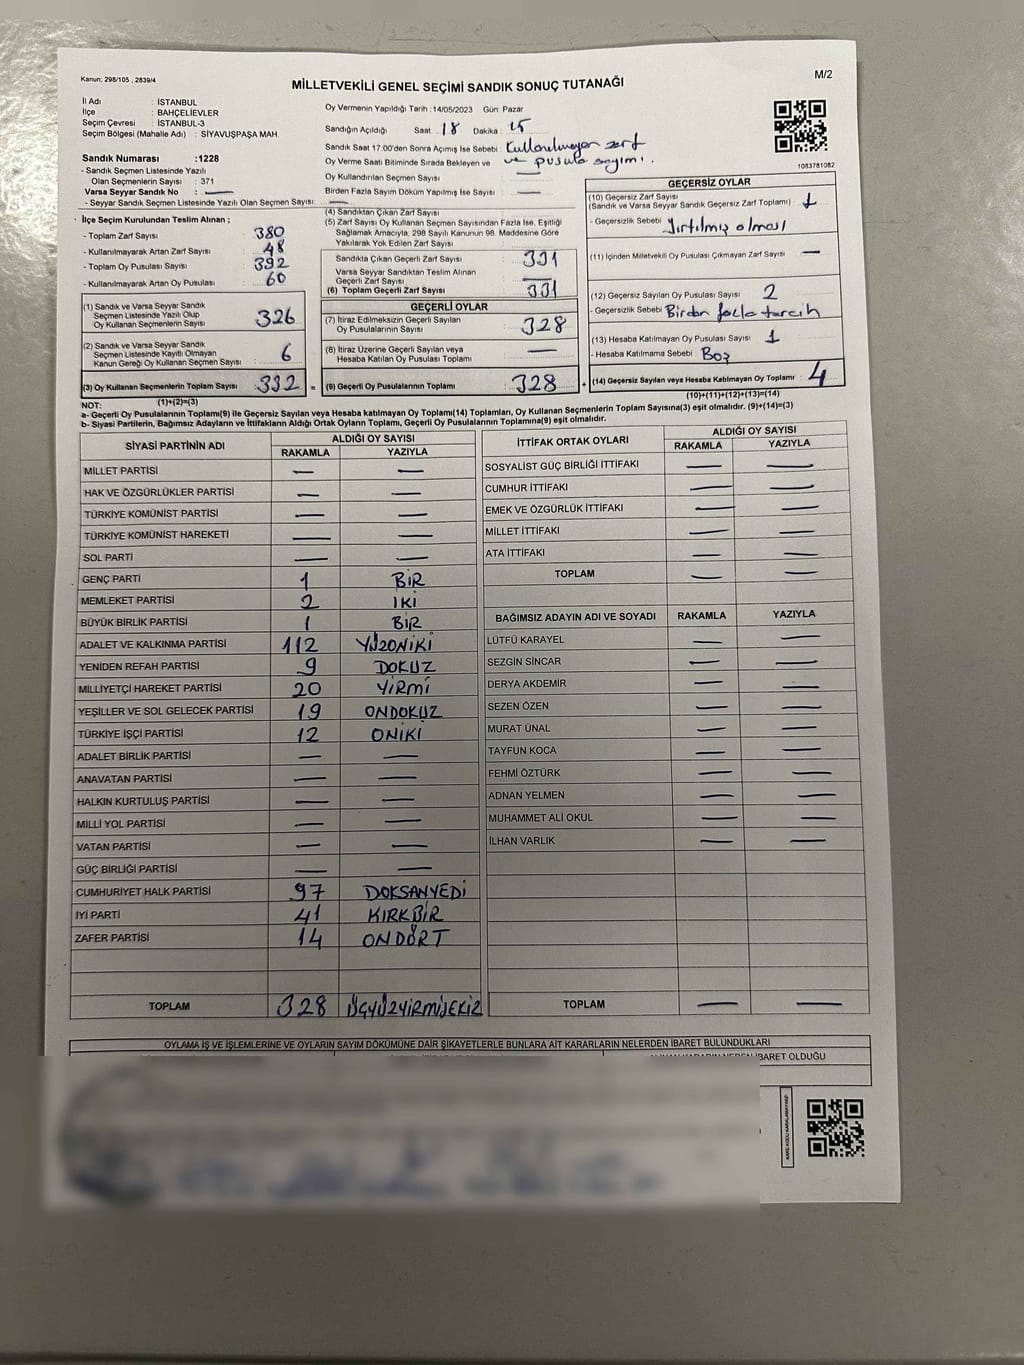 Kanun; 298/105 , 2839/4
MİLLETVEKİLİ GENEL SEÇİMİ SANDIK SONUÇ TUTANAĞI
M/2
İl Adı : İSTANBUL
İlçe : BAHÇELİEVLER
Seçim Çevresi : İSTANBUL-3
Seçim Bölgesi (Mahalle Adı) : SİYAVUŞPAŞA MAH.
Sandık Numarası :1228
- Sandık Seçmen Listesinde Yazılı
Olan Seçmenlerin Sayısı : 371
Varsa Seyyar Sandık No : —
- Seyyar Sandık Seçmen Listesinde Yazılı Olan Seçmen Sayısı: —
Oy Vermenin Yapıldığı Tarih :14/05/2023 Gün: Pazar
Sandığın Açıldığı Saat: 18 Dakika : 15
Sandık Saat 17.00'den Sonra Açımış İse Sebebi : Kullanılmayan zarf
ve pusula sayımı.
Oy Verme Saati Bitiminde Sırada Bekleyen ve
Oy Kullandırılan Seçmen Sayısı : —
Birden Fazla Sayım Döküm Yapılmış İse Sayısı : —
1083781082
İlçe Seçim Kurulundan Teslim Alınan ;
- Toplam Zarf Sayısı : 380
- Kullanılmayarak Artan Zarf Sayısı : 48
- Toplam Oy Pusulası Sayısı : 392
- Kullanılmayarak Artan Oy Pusulası : 60
(1) Sandık ve Varsa Seyyar Sandık
Seçmen Listesinde Yazılı Olup
Oy Kullanan Seçmenlerin Sayısı : 326
(2) Sandık ve Varsa Seyyar Sandık
Seçmen Listesinde Kayıtlı Olmayan
Kanun Gereği Oy Kullanan Seçmen Sayısı : 6
(3) Oy Kullanan Seçmenlerin Toplam Sayısı : 332
(1)+(2)=(3)
(4) Sandıktan Çıkan Zarf Sayısı :
(5) Zarf Sayısı Oy Kullanan Seçmen Sayısından Fazla İse, Eşitliği
Sağlamak Amacıyla, 298 Sayılı Kanunun 98. Maddesine Göre
Yakılarak Yok Edilen Zarf Sayısı :
Sandıkta Çıkan Geçerli Zarf Sayısı : 331
Varsa Seyyar Sandıktan Teslim Alınan
Geçerli Zarf Sayısı : —
(6) Toplam Geçerli Zarf Sayısı : 331
GEÇERLİ OYLAR
(7) İtiraz Edilmeksizin Geçerli Sayılan
Oy Pusulalarının Sayısı : 328
(8) İtiraz Üzerine Geçerli Sayılan veya
Hesaba Katılan Oy Pusulası Toplamı : —
= (9) Geçerli Oy Pusulalarının Toplamı : 328 +
GEÇERSİZ OYLAR
(10) Geçersiz Zarf Sayısı
(Sandık ve Varsa Seyyar Sandık Geçersiz Zarf Toplamı) : 1
- Geçersizlik Sebebi : Yırtılmış olması
(11) İçinden Milletvekili Oy Pusulası Çıkmayan Zarf Sayısı : —
(12) Geçersiz Sayılan Oy Pusulası Sayısı : 2
- Geçersizlik Sebebi : Birden fazla tercih
(13) Hesaba Katılmayan Oy Pusulası Sayısı : 1
- Hesaba Katılmama Sebebi : Boş
(14) Geçersiz Sayılan veya Hesaba Katılmayan Oy Toplamı : 4
(10)+(11)+(12)+(13)=(14)
NOT:
a- Geçerli Oy Pusulalarının Toplamı(9) ile Geçersiz Sayılan veya Hesaba katılmayan Oy Toplamı(14) Toplamları, Oy Kullanan Seçmenlerin Toplam Sayısına(3) eşit olmalıdır. (9)+(14)=(3)
b- Siyasi Partilerin, Bağımsız Adayların ve İttifakların Aldığı Ortak Oyların Toplamı, Geçerli Oy Pusulalarının Toplamına(9) eşit olmalıdır.
SİYASİ PARTİNİN ADI ALDIĞI OY SAYISI
RAKAMLA YAZIYLA
MİLLET PARTİSİ — —
HAK VE ÖZGÜRLÜKLER PARTİSİ — —
TÜRKİYE KOMÜNİST PARTİSİ — —
TÜRKİYE KOMÜNİST HAREKETİ — —
SOL PARTİ — —
GENÇ PARTİ 1 BİR
MEMLEKET PARTİSİ 2 İKİ
BÜYÜK BİRLİK PARTİSİ 1 BİR
ADALET VE KALKINMA PARTİSİ 112 YÜZONİKİ
YENİDEN REFAH PARTİSİ 9 DOKUZ
MİLLİYETÇİ HAREKET PARTİSİ 20 YİRMİ
YEŞİLLER VE SOL GELECEK PARTİSİ 19 ONDOKUZ
TÜRKİYE İŞÇİ PARTİSİ 12 ONİKİ
ADALET BİRLİK PARTİSİ — —
ANAVATAN PARTİSİ — —
HALKIN KURTULUŞ PARTİSİ — —
MİLLİ YOL PARTİSİ — —
VATAN PARTİSİ — —
GÜÇ BİRLİĞİ PARTİSİ — —
CUMHURİYET HALK PARTİSİ 97 DOKSANYEDİ
İYİ PARTİ 41 KIRKBİR
ZAFER PARTİSİ 14 ONDÖRT
TOPLAM 328 ÜÇYÜZYİRMİSEKİZ
İTTİFAK ORTAK OYLARI ALDIĞI OY SAYISI
RAKAMLA YAZIYLA
SOSYALİST GÜÇ BİRLİĞİ İTTİFAKI — —
CUMHUR İTTİFAKI — —
EMEK VE ÖZGÜRLÜK İTTİFAKI — —
MİLLET İTTİFAKI — —
ATA İTTİFAKI — —
TOPLAM — —
BAĞIMSIZ ADAYIN ADI VE SOYADI RAKAMLA YAZIYLA
LÜTFÜ KARAYEL — —
SEZGİN SİNCAR — —
DERYA AKDEMİR — —
SEZEN ÖZEN — —
MURAT ÜNAL — —
TAYFUN KOCA — —
FEHMİ ÖZTÜRK — —
ADNAN YELMEN — —
MUHAMMET ALİ OKUL — —
İLHAN VARLIK — —
TOPLAM — —
OYLAMA İŞ VE İŞLEMLERİNE VE OYLARIN SAYIM DÖKÜMÜNE DAİR ŞİKAYETLERLE BUNLARA AİT KARARLARIN NELERDEN İBARET BULUNDUKLARI
İBARET OLDUĞU